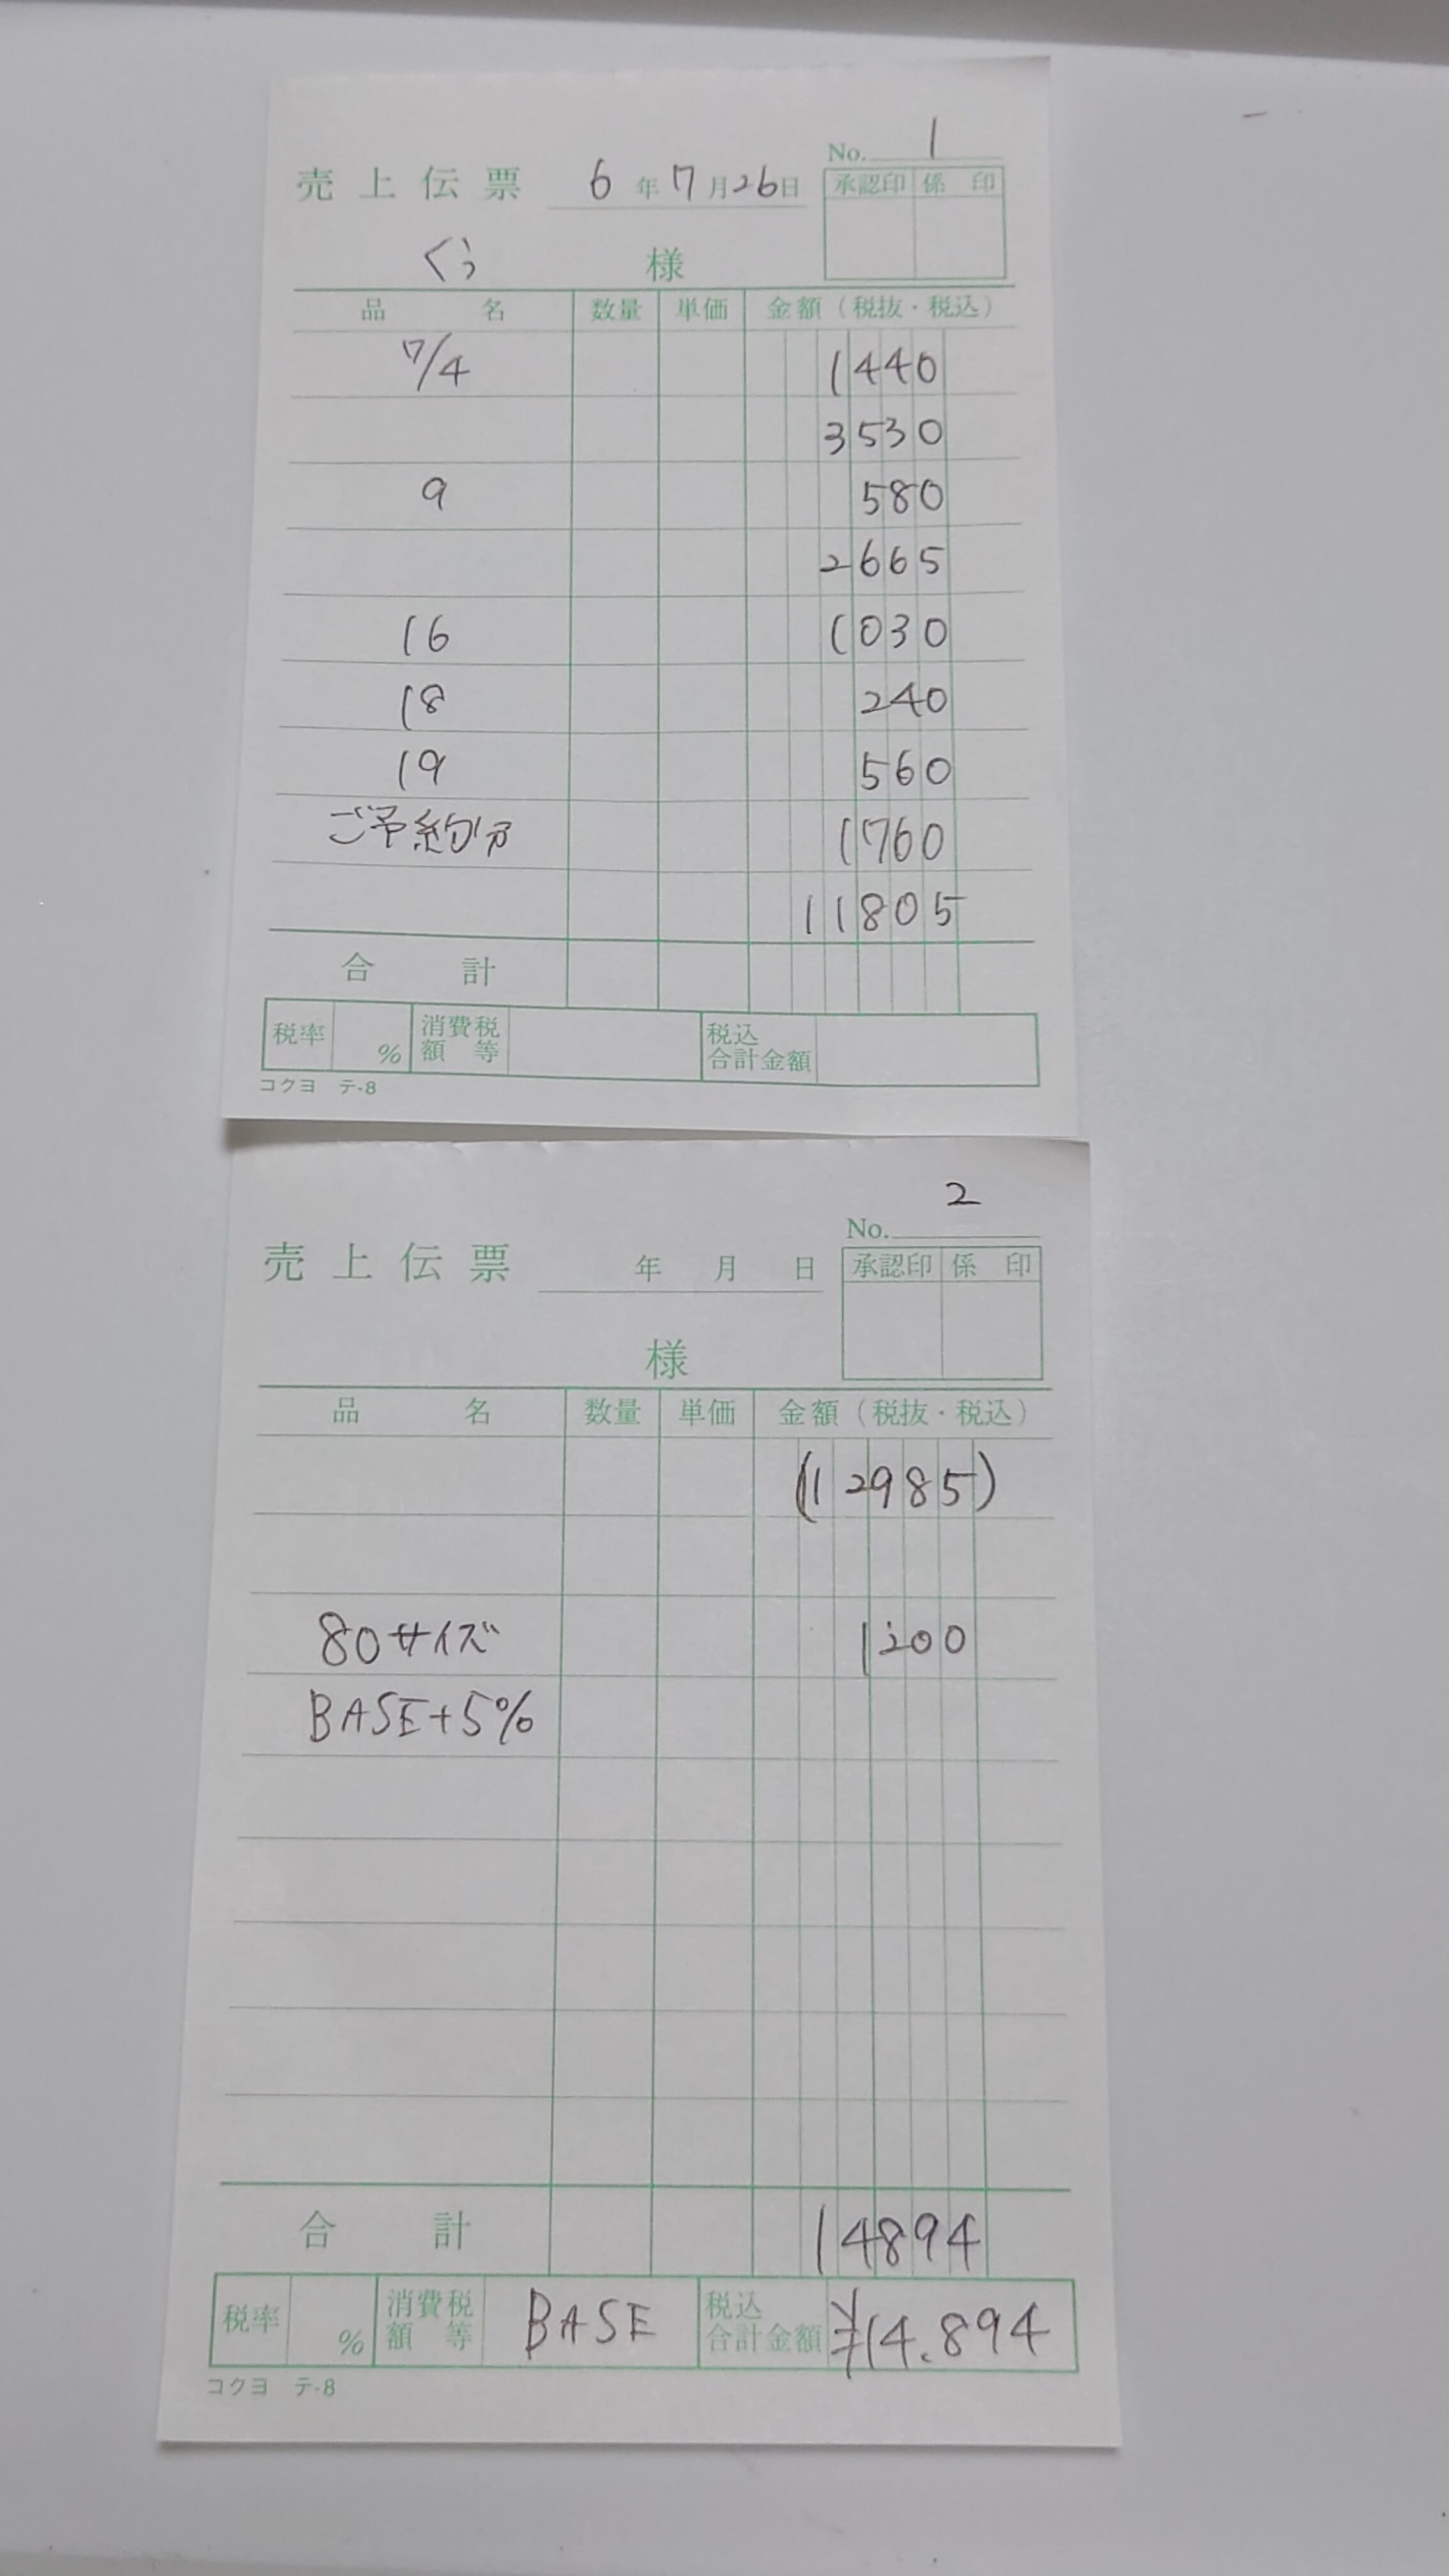 No. 1
売上伝票 6年7月26日
承認印 係印
くら 様
品名 数量 単価 金額(税抜・税込)
7/4 1440
3530
9 580
2665
16 1030
18 240
19 560
ご予約分 1760
11805
合計
税率 % 消費税額等 税込合計金額
コクヨ テ-8
No. 2
売上伝票 年 月 日
承認印 係印
様
品名 数量 単価 金額(税抜・税込)
(12985)
80サイズ 1200
BASE+5%
合計 14894
税率 % 消費税額等 BASE 税込合計金額 ¥14.894
コクヨ テ-8